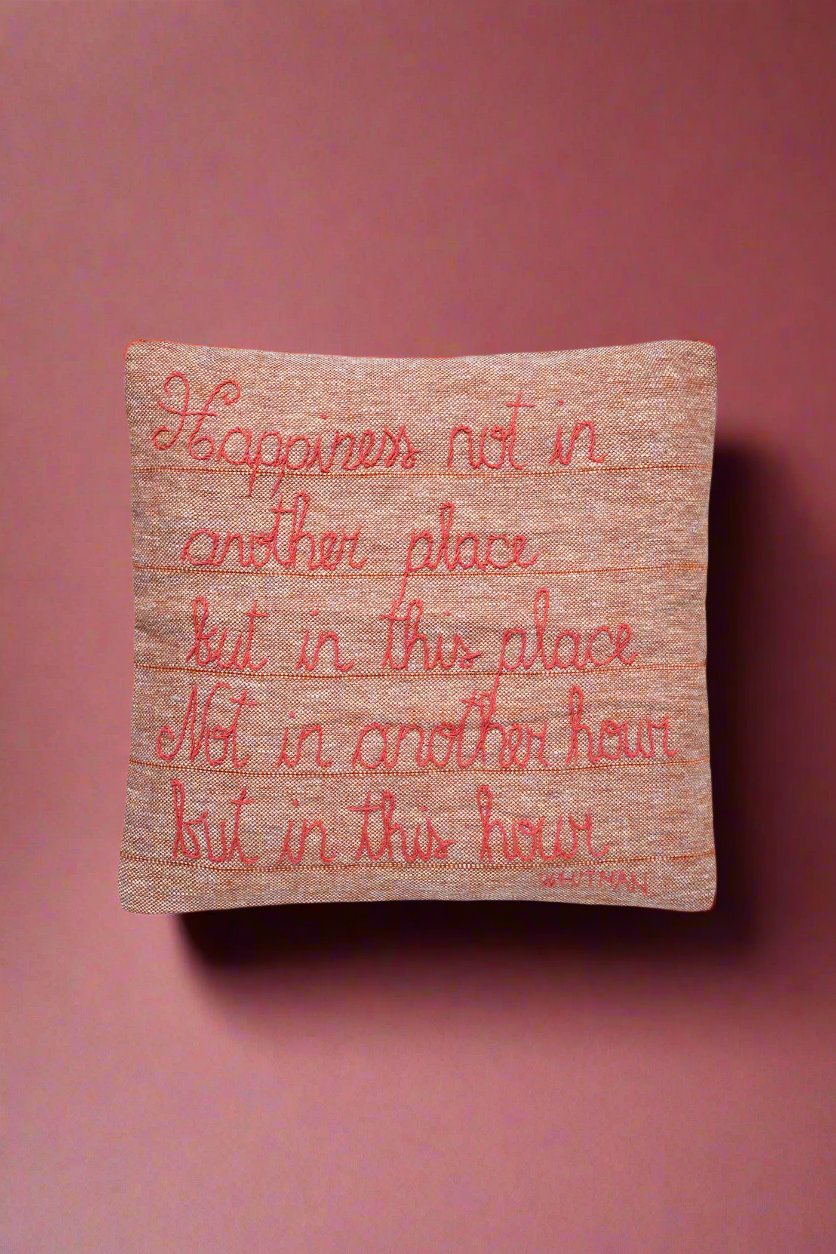 Happiness not in
another place
but in this place
Not in another hour
but in this hour
WHITMAN